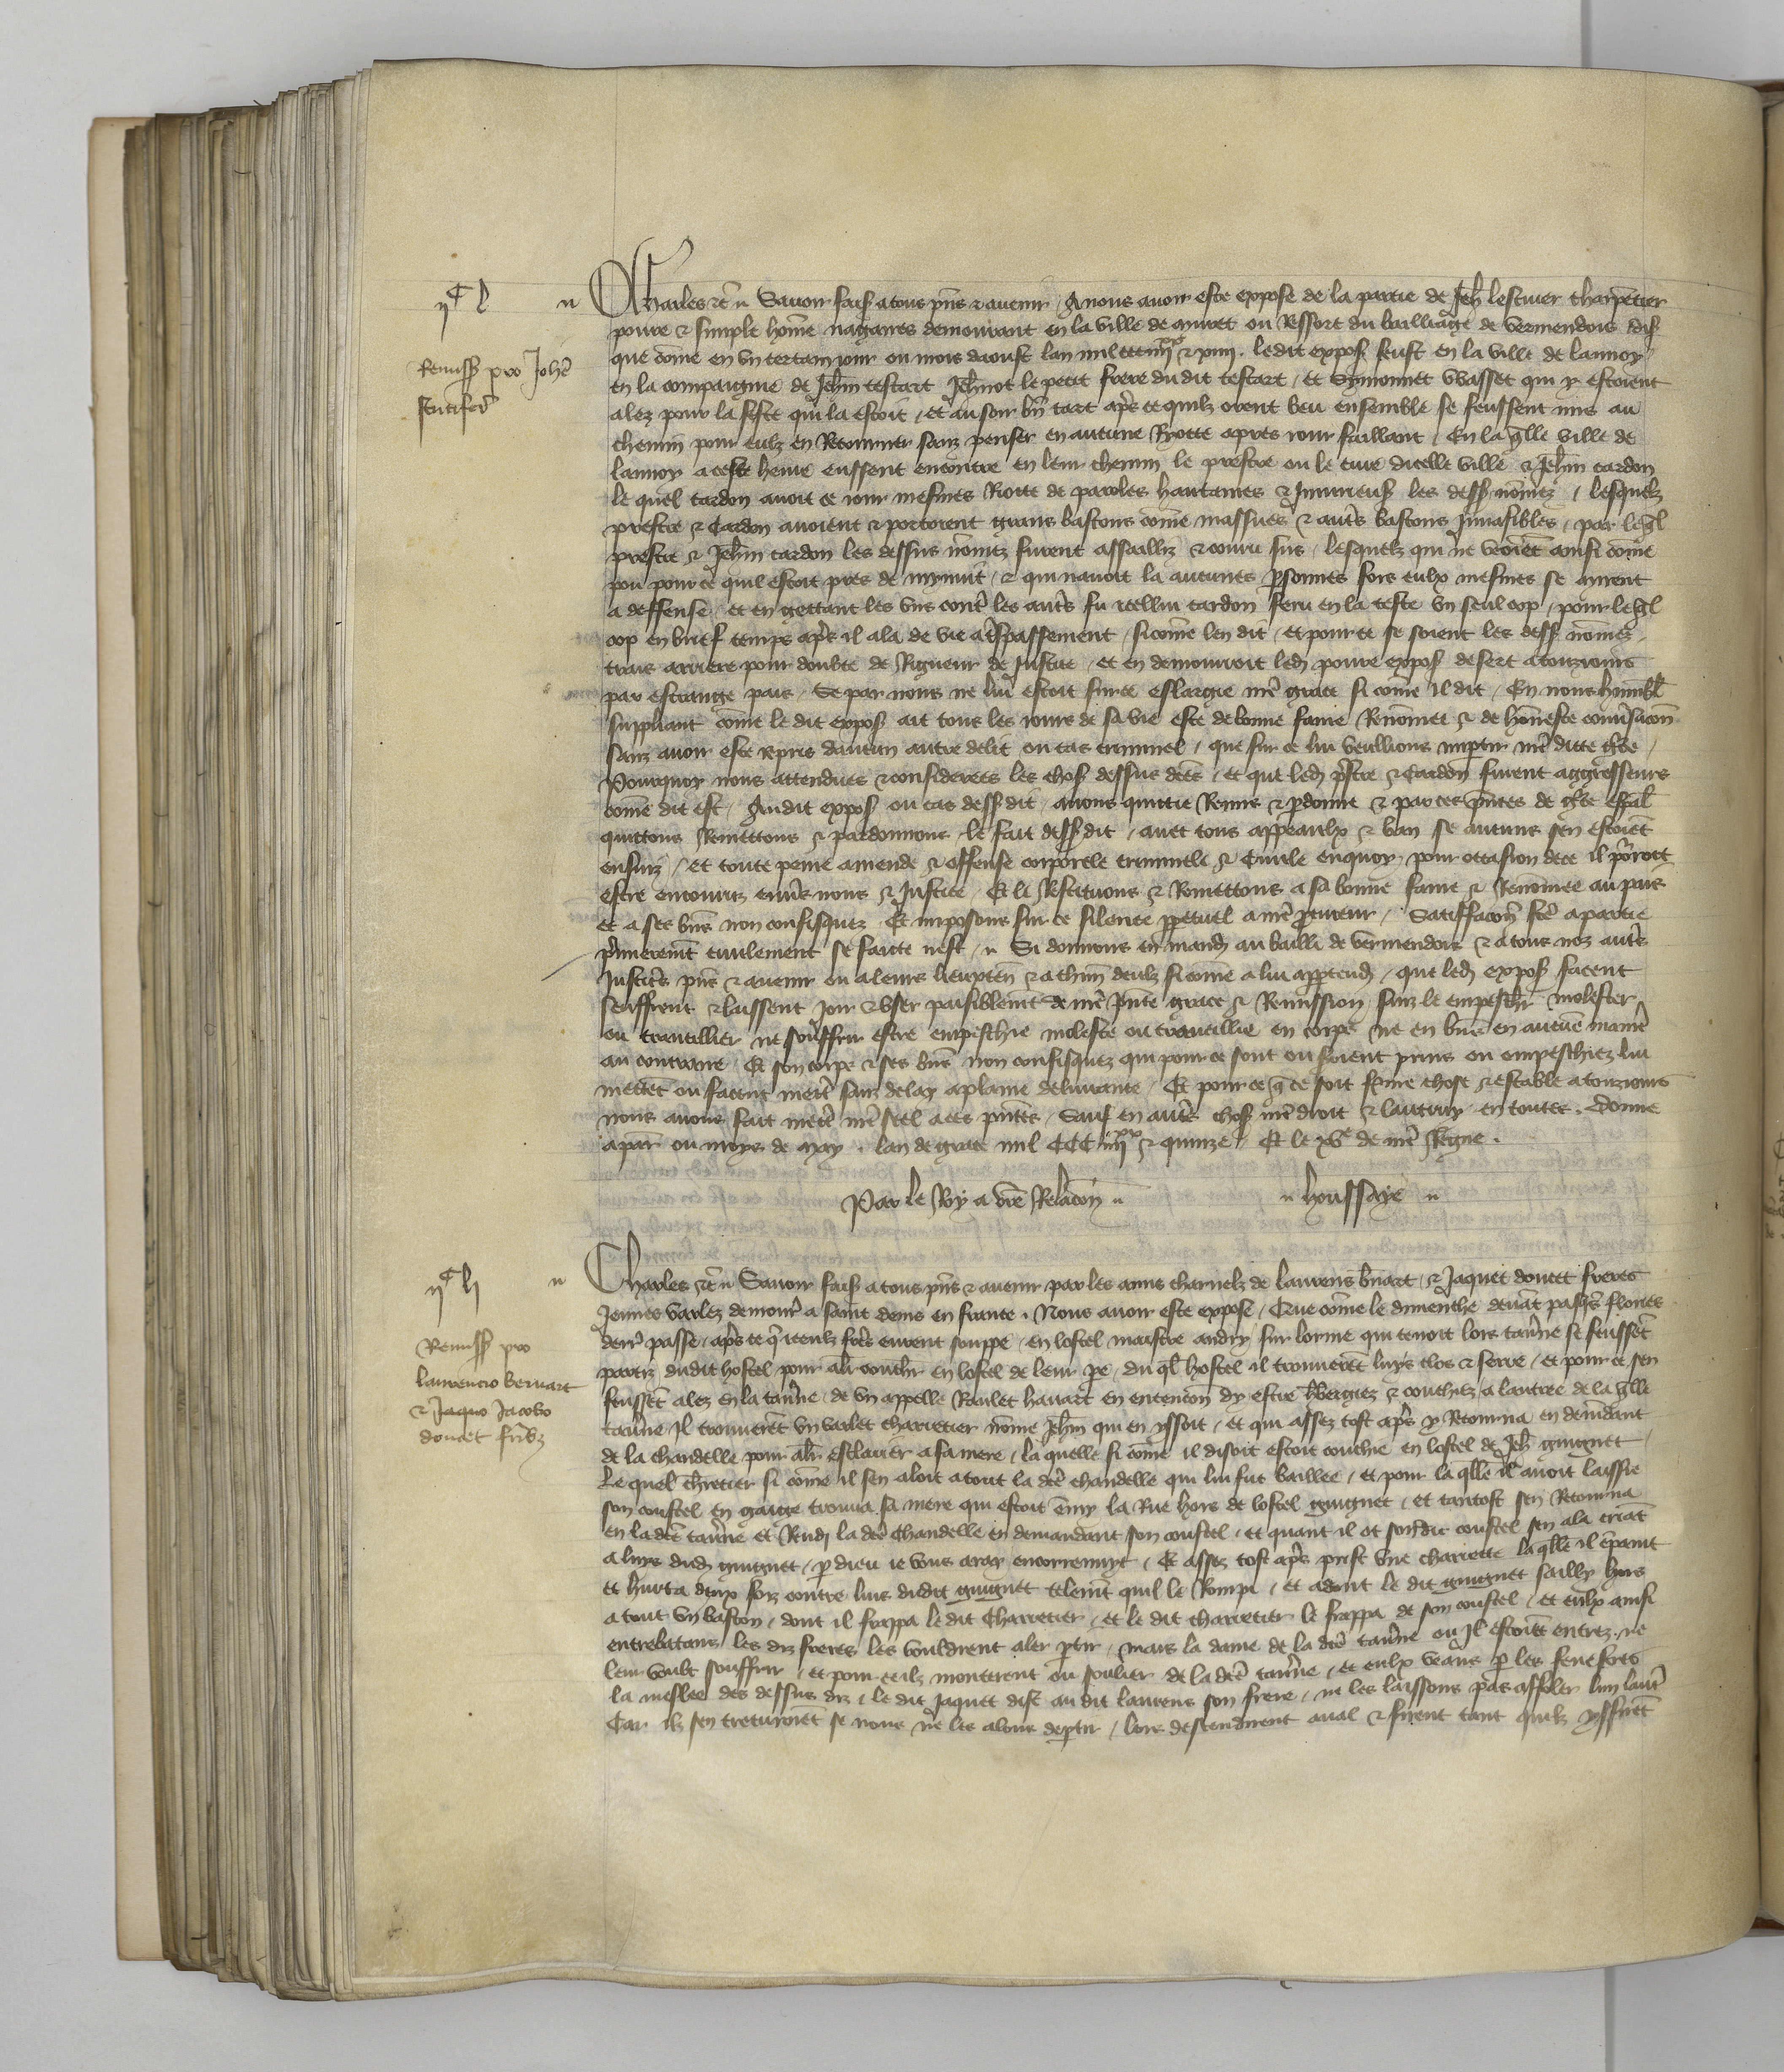 IIᶜ L
Remissio pro Johanne
scutifero
Charles etc. Savoir faisons a tous pñs et avenir, A nous avoir esté exposé de la partie de Jeh Lescuier charpẽtier
povre et simple hõme nagaires demourant en la ville de ou ressort du bailliage de Vermendois dis
que cõme en un certain jour ou mois daoust lan mil CCC IIIIxx et XIIII. ledit expos feust en la ville de Lannoy
en la compaignie de Jehin testart Jehinot le petit frere du dit testart, et Symonnet Wasset qui y estoient
alez pour la feste qui la estoit, et au soir bñ tart aps ce quilz orent beu ensemble se feussent mis au
chemin pour eulz en retourner sanz penser en aucune Riotte apres jour faillant, En la qlle ville de
Lannoy a ceste heure eussent encontre en leur chemin le prestre ou le cure dicelle ville et Jehin cardon
le quel cardon avoit ce jour mesmes Riotte de paroles hautaines et les dess nõmez, lesquelz
prestre et Cardon avoient et portoient grans bastons cõme massues et auts bastons Invasibles, par leql
prestre et Jehin cardon les dessus nõmez furent assailliz et couru sus, lesquelz qui ne veoiẽt ainsi cõme
pou pour ce quil estoit pres de mynuit, et qui navoit la aucunes psonnes fors eulx mesmes se mirent
a deffense, et en gettant les uns cont les auts fu icellui cardon feru en la teste un seul cop, pour leql
cop en brief temps aps il ala de vie a tspassement, sicõme len dit, et pour ce se soient les dess nõmez
trais arriere pour doubte de Rigueur de Justice, et en demourroit led povre expos desert a tousjours
par estrange pais, Se par nous ne lui estoit sur ce eslargie nre grace si cõme il dit, En nous humbl
supliant cõme le dit expos ait tous les jours de sa vie esté de bonne fame Renõmee et de hõneste convsacõn
sanz avoir esté repris daucun autre delit ou cas criminel, que sur ce lui veullions impartir nre ditte gce,
Pourquoy nous attendues et considerees les chos dessus dces, et que led prstre et Cardon furent aggresseurs
cõme dit est, Audit expos ou cas dess dit, avons quittié Remis et pdonné et par ces pñtes de gce espal
quittons Remettons et pardonnons le fait dess dit, avec tous appeaulx et ban se aucuns sen estoiẽt
ensuiz, et toute peine amende et offense corporele criminele et Civile enquoy pour occasion de ce il porroit
estre encouruz envs nous et Justice, Et le Restituons et Remettons a sa bonne fame et Renõmee au pais
et a ses bñs non confisquez Et imposons sur ce silence ppetuel a nre pcureur, Satisfacõn fce a partie
primierement civilement se faicte nest, Si donnons en mand au bailli de Vermendois et a tous noz auts
Justics pñs et avenir ou a leurs lieuxten et a chun deulz sicõme a lui apptend, que led expos facent
seuffrent et laissent joir et user paisiblemt de nre pñte grace et Remission sanz le empeschr molester
ou travaillier ne souffrir estre empeschie molesté ou travaillié en corps ne en biens en aucune maniẽ
au contraire, Et son corps et ses biens non confisquez qui pour ce sont ou seroient prins ou empeschiez lui
mettet ou facent mettre sanz delay a plaine delivrance, Et pour ce q ce soit ferme chose et estable a tousjours
nous avons fait mettre nre seel a ces pñtes, Sauf en auts chos nre droit et lautruy en toutes. Donné
a Par ou moys de May, lan de grace mil CCC IIIIxx et quinze, Et le XVe de nre Regne.
Par le Roy a vre Relacõn Houssaye
IIᶜ LI
Remiss pro
Laurencio Bernart
et Jaquo Jacobo
doucet frībz
Charles etc. Savoir fais a tous pñs et avenir par les amis charnelz de Laurens Bnart, et Jaquet doucet freres
Jeunes varlez demour a saint denis en france, Nous avoir esté exposé, Que cõme le dimenche devãt pasqs flories
derr passé, aps ce q iceulz frẽs eurent souppé, en lostel maistre andry sur lorme qui tenoit lors tavne se feussẽt
partiz dudit hostel pour alr couchr en lostel de leur pe, du ql hostel il trouverẽt luys clos et serré, et pour ce sen
feussẽt alez en la tavne, de un appellé Raulet havart en entencõn dy estre hbergiez et couchiez a lentree de la qlle
tavne Il trouverẽt un varlet charretier nõmé Jehin qui en yssoit, et qui assez tost aps y Retourna en demãdant
de la chandelle pour alr esclairer a sa mere, la quelle si cõme il disoit estoit couchiee en lostel de Jeh guignet,
Le quel chretier si cõme il sen aloit a tout la dce chandelle qui lui fut baillee, et pour la qlle il avoit laissié
son coustel en gaige trouva sa mere qui estoit emy la Rue hors de lostel guignet, et tantost sen Retourna
en la dce tavne et Rendi la dce Chandelle en demandant son coustel, et quant il ot sondit coustel sen ala criãt
a luys dud guignet, p dieu je vous aray encorrennyt, Et assez tost aps prist une charrette la qlle il
et hurta deux foiz contre luis dudit guignet telemt quil le Rompi, et adont le dit guignet sailly hors
a tout un baston, dont il frappa le dit Charretier, et le dit charretier le frappa de son coustel, et eulx ainsi
entrebatans les diz freres les vouldrent aler ptir, mais la dame de la dce tavne ou Il estoiẽt entrez, ne
leur voult souffrir, et pour ce ilz monterent ou solier de la dce tavne, et eulx veans p les fenestres
la meslee des dessus diz, le dit Jaquet dist au dit Laurens son frere, ne les laissons pas affoler lun lautr
Car ilz sen se nous ne les alons deptir, lors descendirent aval et firent tant quilz yssirẽt